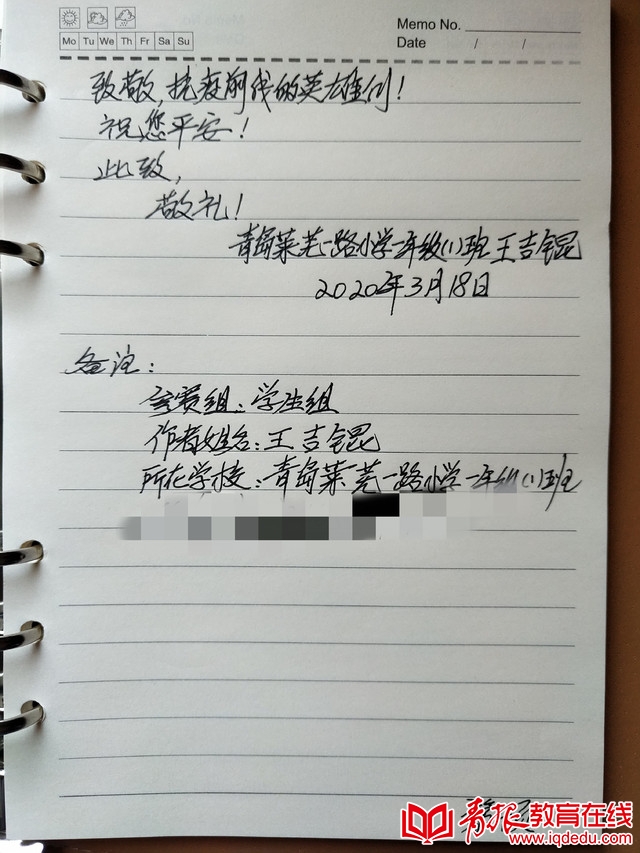 Memo No.
Mo Tu We Th Fr Sa Su
Date / /
致敬,抗疫前线的英雄们!
祝您平安!
此致,
敬礼!
青岛莱芜一路小学一年级(1)班 王吉锟
2020年3月18日
备注:
参赛组:学生组
作者姓名:王吉锟
所在学校:青岛莱芜一路小学一年级(1)班
青报教育在线
www.iqdedu.com